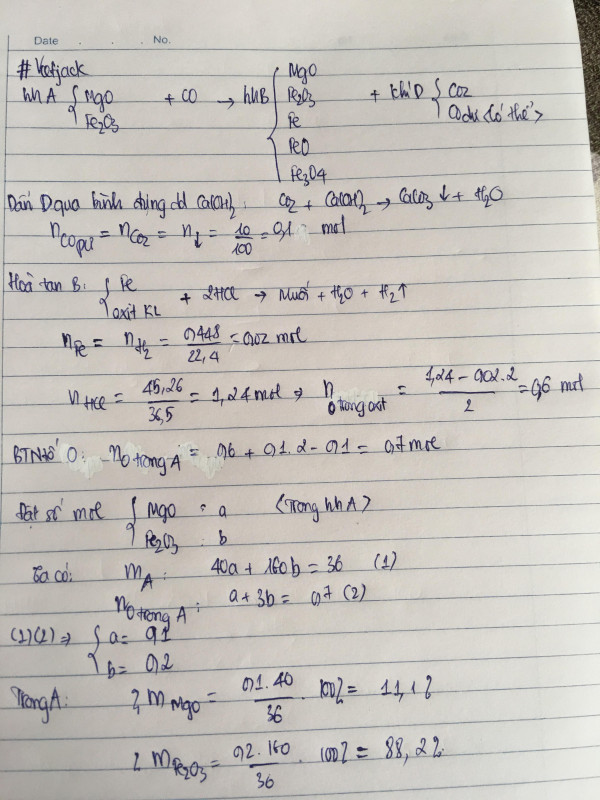 Date . . . No.
#Kofjack
hhA { MgO Fe2O3 + CO → hhB { MgO Fe2O3 Fe FeO Fe3O4 + khí D { CO2 CO dư <có thể>
Dẫn D qua bình đựng dd Ca(OH)2: CO2 + Ca(OH)2 → CaCO3 ↓ + H2O
nCO pứ = nCO2 = n↓ = 10/100 = 0,1 mol
Hoà tan B: { Fe oxit KL + 2HCl → Muối + H2O + H2↑
nFe = nH2 = 0,448/22,4 = 0,02 mol
nHCl = 45,26/36,5 = 1,24 mol ⇒ nO trong oxit = (1,24 - 0,02.2)/2 = 0,6 mol
BTNtố O: nO trong A = 0,6 + 0,1.2 - 0,1 = 0,7 mol
Đặt số mol { MgO : a Fe2O3 : b <Trong hh A>
Ta có: mA: 40a + 160b = 36 (1)
nO trong A: a + 3b = 0,7 (2)
(1)(2) ⇒ { a = 0,1 b = 0,2
Trong A: % mMgO = 0,1.40/36 . 100% = 11,1%
% mFe2O3 = 0,2.160/36 . 100% = 88,2%